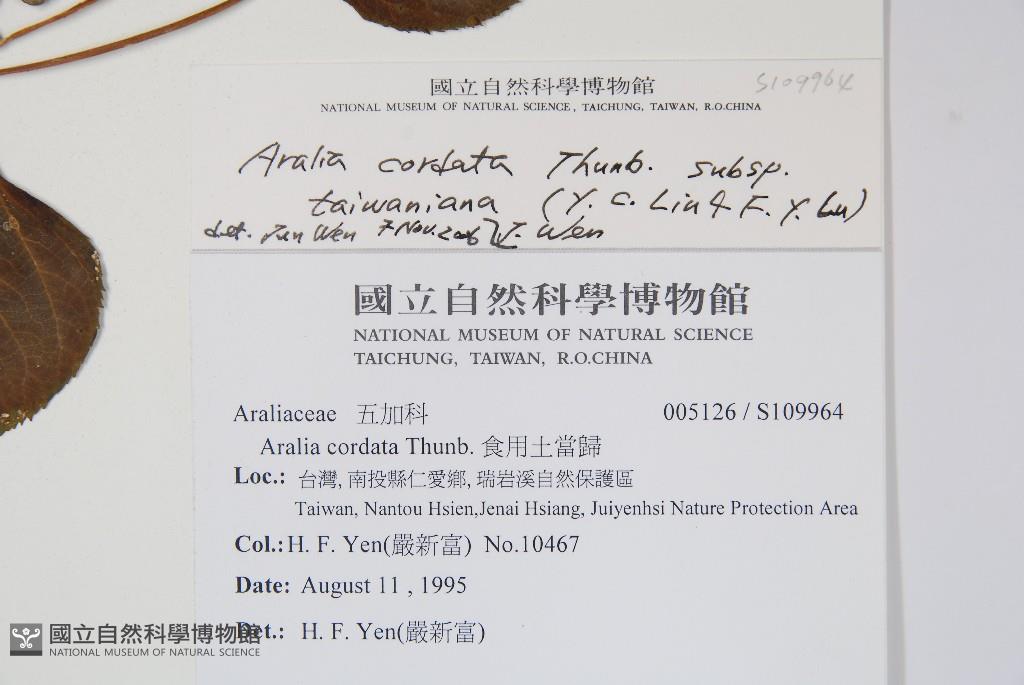 國立自然科學博物館
S109964
NATIONAL MUSEUM OF NATURAL SCIENCE, TAICHUNG, TAIWAN, R.O.CHINA
Aralia cordata Thunb. subsp.
taiwaniana (Y. C. Liu & F. Y. Lu)
det. Jun Wen 7 Nov. 2006 J. Wen
國立自然科學博物館
NATIONAL MUSEUM OF NATURAL SCIENCE
TAICHUNG, TAIWAN, R.O.CHINA
Araliaceae 五加科 005126 / S109964
Aralia cordata Thunb. 食用土當歸
Loc.: 台灣, 南投縣仁愛鄉, 瑞岩溪自然保護區
Taiwan, Nantou Hsien,Jenai Hsiang, Juiyenhsi Nature Protection Area
Col.: H. F. Yen(嚴新富) No.10467
Date: August 11 , 1995
Det.: H. F. Yen(嚴新富)
國立自然科學博物館
NATIONAL MUSEUM OF NATURAL SCIENCE